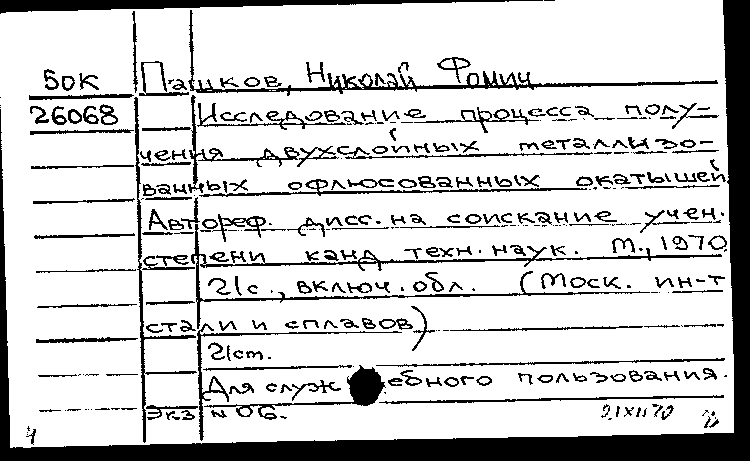 БОК Пашков, Николай Фомич
26068 Исследование процесса полу-
чения двухслойных металлизо-
ванных офлюсованных окатышей
Автореф. дисс. на соискание учен.
степени канд. техн. наук. М., 1970
21с., включ. обл. (Моск. ин-т
стали и сплавов)
21ст.
Для служебного пользования.
Экз N 06.
21XII70
4